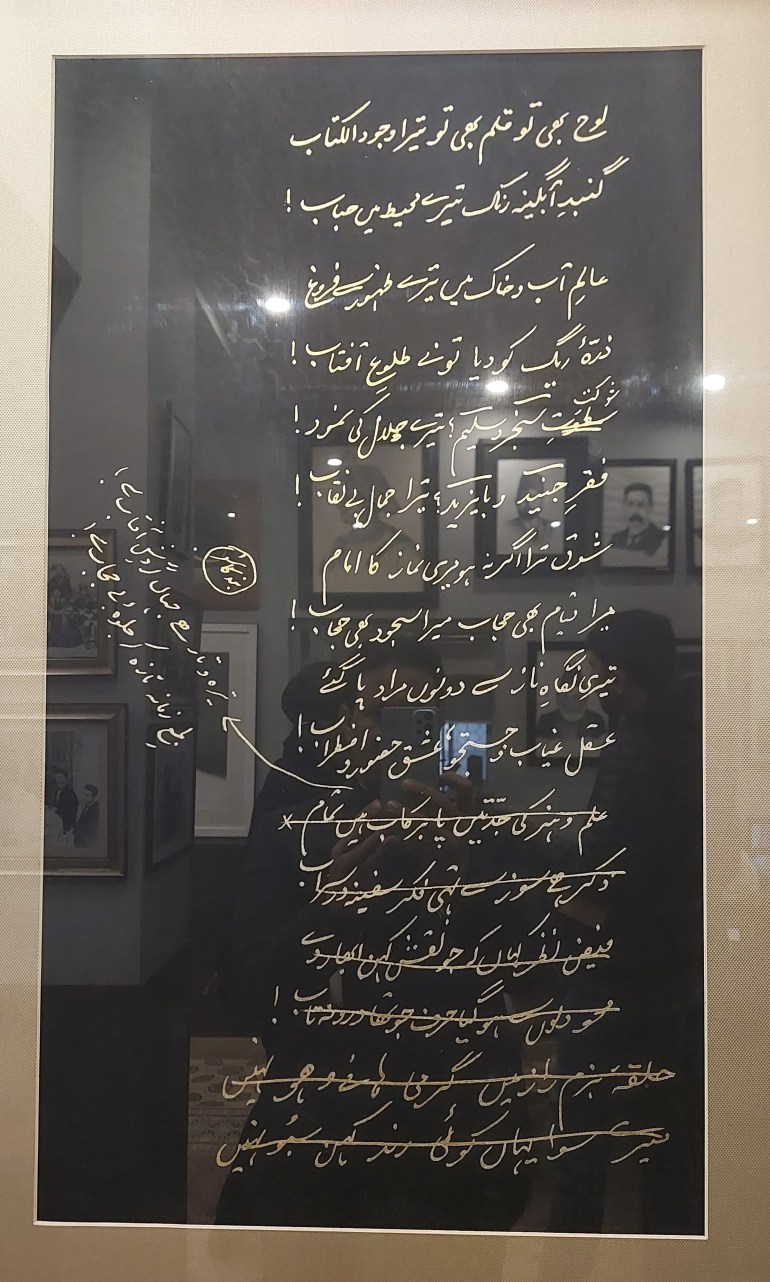 لوح بھی تو قلم بھی تو تیرا وجود الکتاب
گنبدِ آبگینہ رنگ تیرے محیط میں حباب!
عالمِ آب و خاک میں تیرے ظہور سے فروغ
ذرّۂ ریگ کو دیا تو نے طلوعِ آفتاب!
شوکتِ
سطوتِ سنجر و سلیم؟ تیرے جلال کی نمود!
فقرِ جنید و بایزید؟ تیرا جمال بے نقاب!
شوق ترا اگر نہ ہو میری نماز کا امام
میرا قیام بھی حجاب میرا سجود بھی حجاب!
تیری نگاہِ ناز سے دونوں مراد پا گئے
عقل غیاب و جستجو، عشق حضور و اضطراب!
علم و ہنر کی جدّتیں پا برکاب ہیں تمام
ذکر ہے سوز سے تہی فکر سفینہ در سراب
فیضِ نظر کہاں کہ جو نقشِ کہن ابھار دے
محو دلوں سے ہو گیا حرف جو تھا
حلقہ بزمِ راز میں گرمی ہائے و ہو نہیں
تیرے سوا یہاں کوئی رند کہن سبو نہیں
تیرہ و تار ہے جہاں گردشِ آفتاب سے!
طبعِ زمانہ تازہ کر جلوۂ بے حجاب سے!